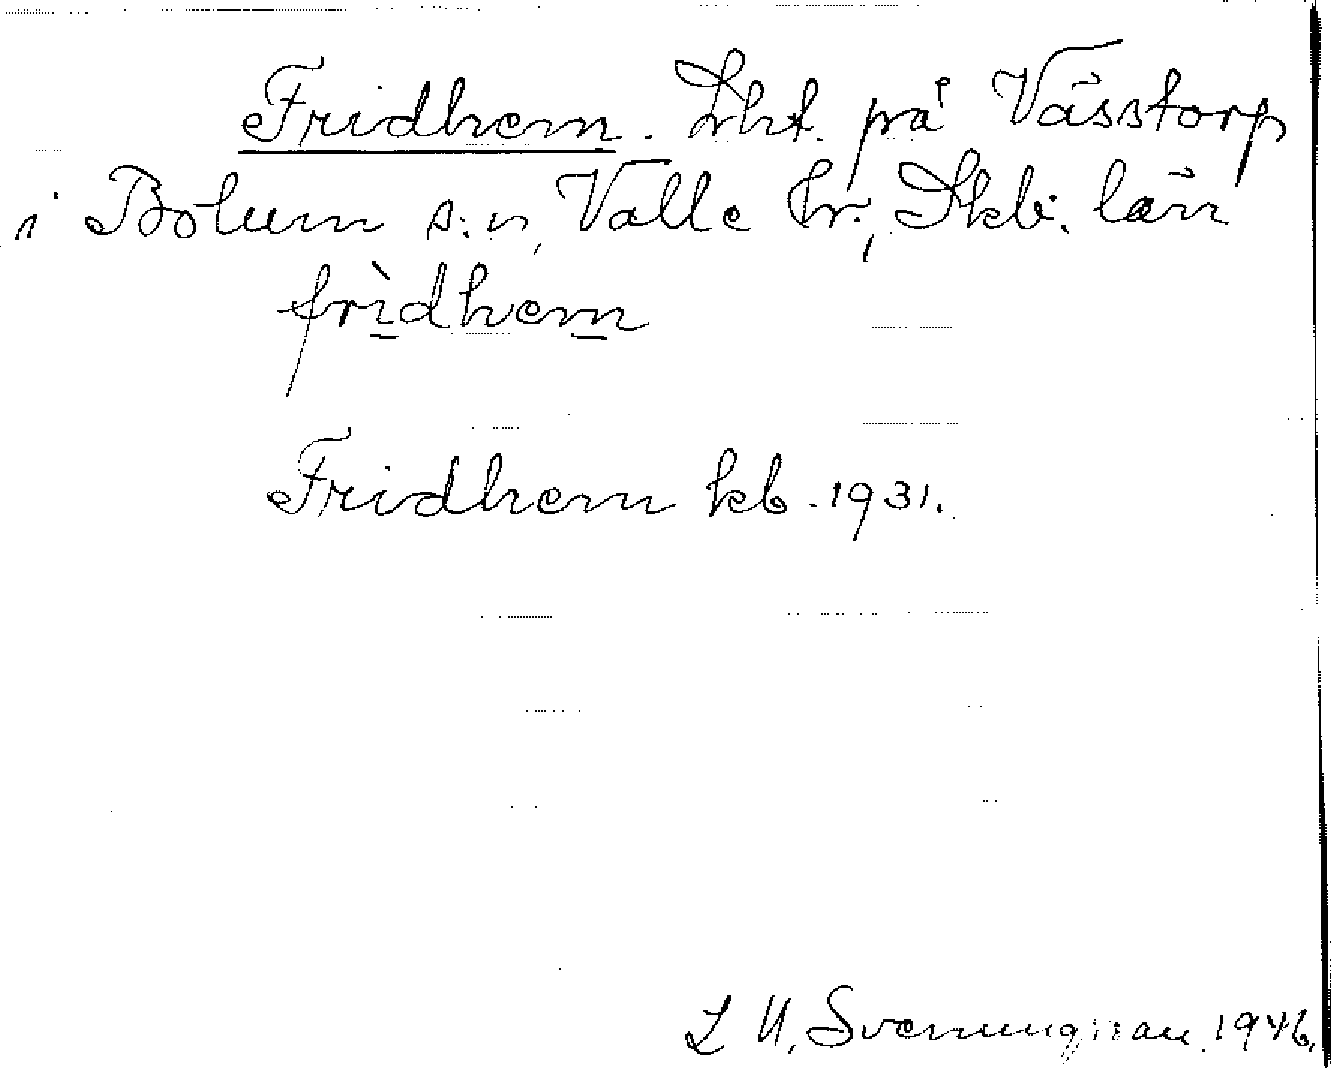 Fridhem. Lht. på Våsstorp
i Bolum s:n, Valle hr., Skb. län
frìdhem
Fridhem kb. 1931.
L U. Svenungsson 1946.